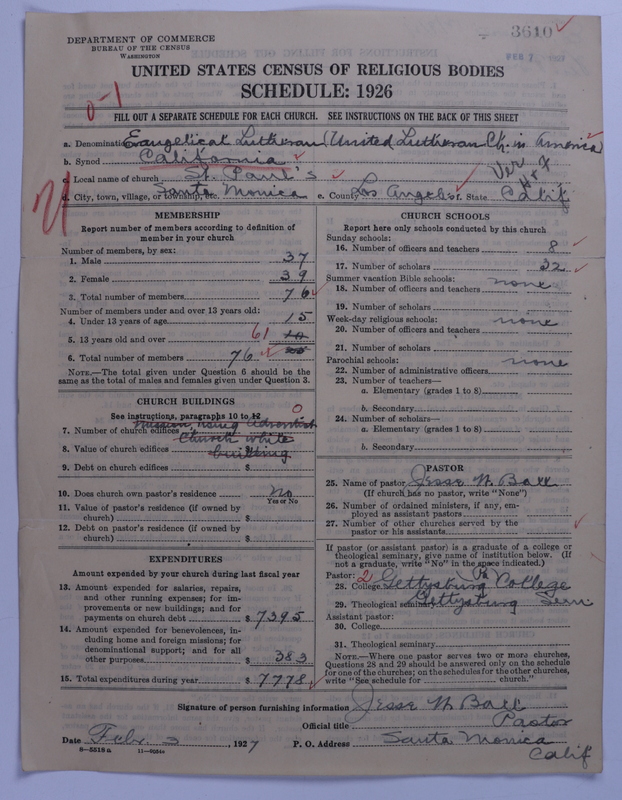 3610
DEPARTMENT OF COMMERCE
BUREAU OF THE CENSUS
WASHINGTON
FEB 7 1927
UNITED STATES CENSUS OF RELIGIOUS BODIES
SCHEDULE: 1926
0-1
FILL OUT A SEPARATE SCHEDULE FOR EACH CHURCH. SEE INSTRUCTIONS ON THE BACK OF THIS SHEET
a. Denomination Evangelical Lutheran (United Lutheran Ch. in America)
b. Synod California
c. Local name of church St. Paul's
d. City, town, village, or township, etc. Santa Monica e. County Los Angeles f. State Calif
MEMBERSHIP
Report number of members according to definition of member in your church
Number of members, by sex:
1. Male 37
2. Female 39
3. Total number of members 76
Number of members under and over 13 years old:
4. Under 13 years of age 15
5. 13 years old and over 61
6. Total number of members 76
NOTE.—The total given under Question 6 should be the same as the total of males and females given under Question 3.
CHURCH BUILDINGS
See instructions, paragraphs 10 to 12
7. Number of church edifices Mission using Adventist 0
Church while
8. Value of church edifices $ building
9. Debt on church edifices $
10. Does church own pastor's residence No
Yes or No
11. Value of pastor's residence (if owned by church) $
12. Debt on pastor's residence (if owned by church) $
EXPENDITURES
Amount expended by your church during last fiscal year
13. Amount expended for salaries, repairs, and other running expenses; for improvements or new buildings; and for payments on church debt $ 7395
14. Amount expended for benevolences, including home and foreign missions; for denominational support; and for all other purposes $ 383
15. Total expenditures during year $ 7778
CHURCH SCHOOLS
Report here only schools conducted by this church
Sunday schools:
16. Number of officers and teachers 8
17. Number of scholars 32
Summer vacation Bible schools: none
18. Number of officers and teachers
19. Number of scholars
Week-day religious schools: none
20. Number of officers and teachers
21. Number of scholars
Parochial schools: none
22. Number of administrative officers
23. Number of teachers—
a. Elementary (grades 1 to 8)
b. Secondary
24. Number of scholars—
a. Elementary (grades 1 to 8)
b. Secondary
PASTOR
25. Name of pastor Jesse W. Ball
(If church has no pastor, write "None")
26. Number of ordained ministers, if any, employed as assistant pastors
27. Number of other churches served by the pastor or his assistants
If pastor (or assistant pastor) is a graduate of a college or theological seminary, give name of institution below. (If not a graduate, write "No" in the space indicated.)
Pastor: 2 Pa
28. College Gettysburg College
29. Theological seminary Gettysburg Sem
Assistant pastor:
30. College
31. Theological seminary
NOTE.—Where one pastor serves two or more churches, Questions 28 and 29 should be answered only on the schedule for one of the churches; on the schedules for the other churches, write "See schedule for church."
Signature of person furnishing information Jesse W. Ball
Official title Pastor
Date Febr. 3, 1927 P. O. Address Santa Monica
Calif
8—5518a 11—9054